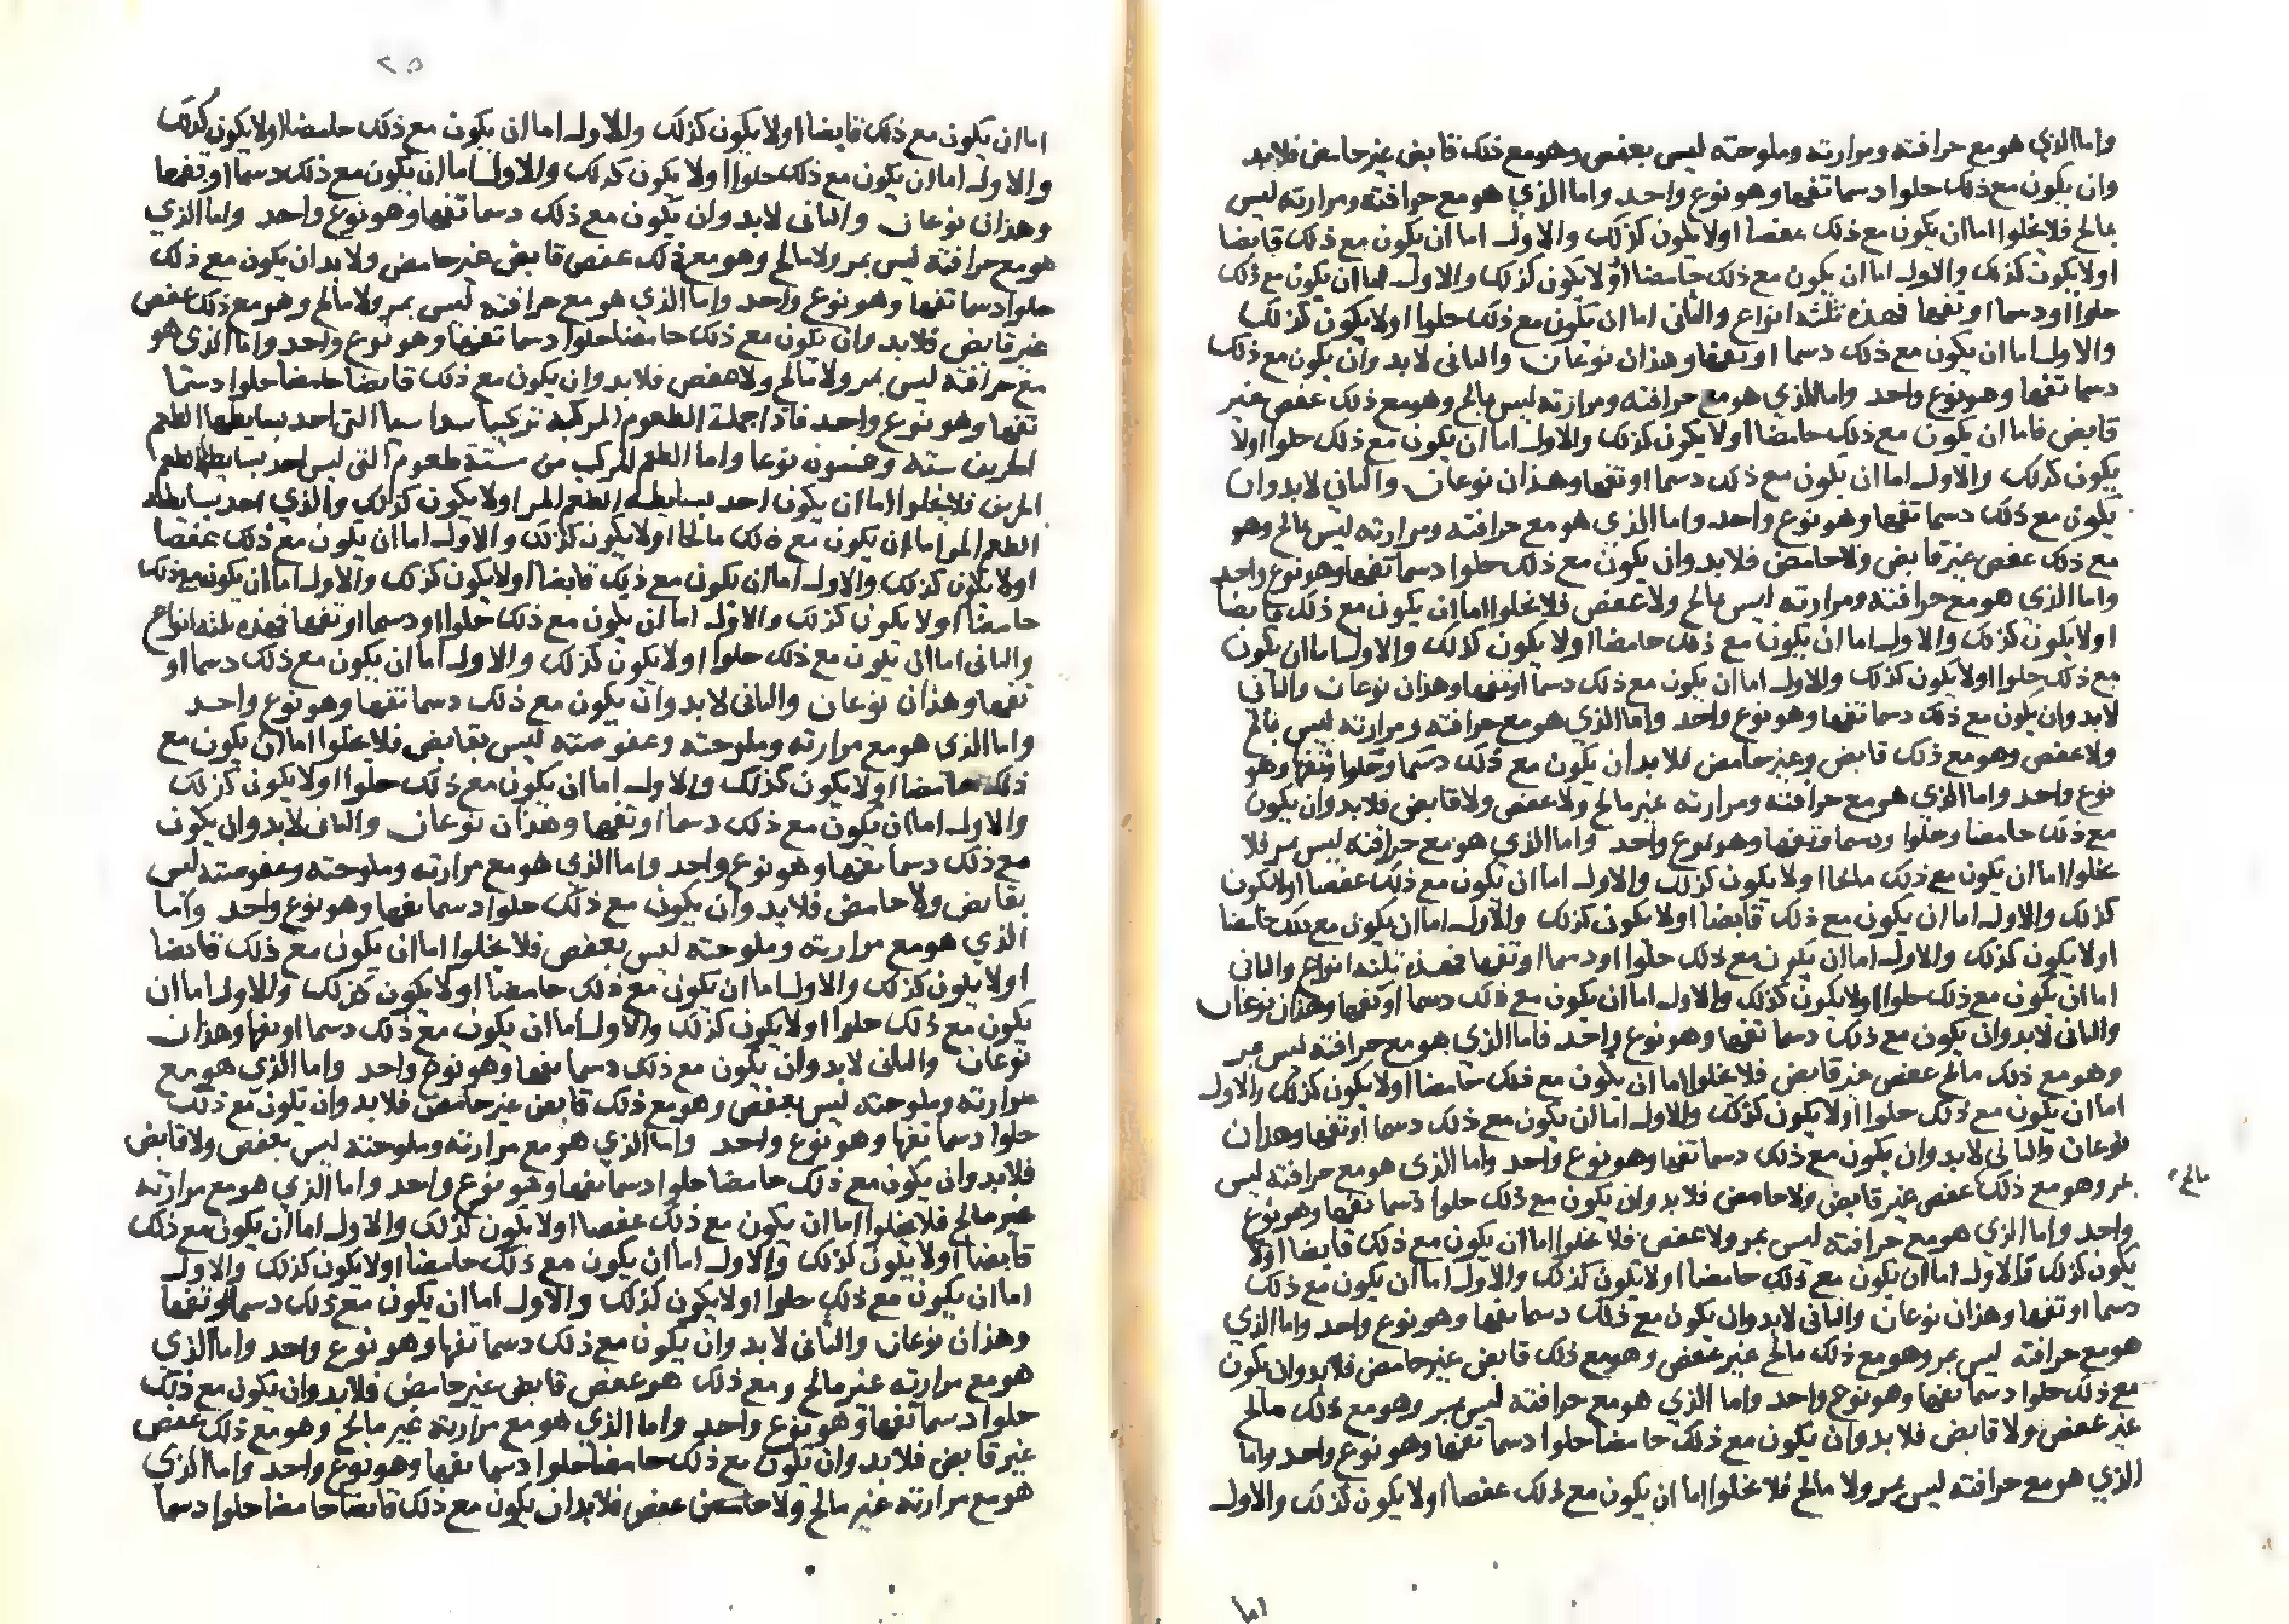 واما الذي هو مع حرافته ومرارته وملوحته ليس بعفص وهو مع ذلك قابض غير حامض فلابد
وان يكون مع ذلك حلوا دسما تفها وهو نوع واحد واما الذي هو مع حرافته ومرارته ليس
بمالح فلا يخلوا اما ان يكون مع ذلك عفصا اولا يكون كذلك والاول اما ان يكون مع ذلك قابضا
اولا يكون كذلك والاول اما ان يكون مع ذلك حامضا اولا يكون كذلك والاول اما ان يكون مع ذلك
حلوا اودسما اوتفها فهذه ثلثه انواع والثانى اما ان يكون مع ذلك حلوا اولا يكون كذلك
والاول اما ان يكون مع ذلك دسما اوتفها وهذان نوعان والثانى لابد وان يكون مع ذلك
دسما تفها وهو نوع واحد واما الذي هو مع حرافته ومرارته ليس بمالح وهو مع ذلك عفص غير
قابض فاما ان يكون مع ذلك حامضا اولا يكون كذلك والاول اما ان يكون مع ذلك حلوا اولا
يكون كذلك والاول اما ان يكون مع ذلك دسما اوتفها وهذان نوعان والثاني لابد وان
يكون مع ذلك دسما تفها وهو نوع واحد واما الذي هو مع حرافته ومرارته ليس بمالح وهو
مع ذلك عفص غير قابض ولا حامض فلابد وان يكون مع ذلك حلوا دسما تفها وهو نوع واحد
واما الذي هو مع حرافته ومرارته ليس بمالح ولا عفص فلا يخلوا اما ان يكون مع ذلك قابضا
اولا يكون كذلك والاول اما ان يكون مع ذلك حامضا اولا يكون كذلك والاول اما ان يكون
مع ذلك حلوا اولا يكون كذلك والاول اما ان يكون مع ذلك دسما اوتفها وهذان نوعان والثاني
لابد وان يكون مع ذلك دسما تفها وهو نوع واحد واما الذي هو مع حرافته ومرارته ليس بمالح
ولا عفص وهو مع ذلك قابض وغير حامض فلابد ان يكون مع ذلك دسما وحلوا وتفها وهو
نوع واحد واما الذي هو مع حرافته ومرارته غير مالح ولا عفص ولا قابض فلابد وان يكون
مع ذلك حامضا وحلوا ودسما وتفها وهو نوع واحد واما الذي هو مع حرافته ليس بمر فلا
يخلوا اما ان يكون مع ذلك مالحا اولا يكون كذلك والاول اما ان يكون مع ذلك عفصا اولا يكون
كذلك والاول اما ان يكون مع ذلك قابضا اولا يكون كذلك والاول اما ان يكون مع ذلك حامضا
اولا يكون كذلك والاول اما ان يكون مع ذلك حلوا اودسما اوتفها فهذه ثلثه انواع والثانى
اما ان يكون مع ذلك حلوا اولا يكون كذلك والاول اما ان يكون مع ذلك دسما اوتفها وهذان نوعان
والثانى لابد وان يكون مع ذلك دسما تفها وهو نوع واحد فاما الذي هو مع حرافته ليس بمر
وهو مع ذلك مالح عفص غير قابض فلا يخلوا اما ان يكون مع ذلك حامضا اولا يكون كذلك والاول
اما ان يكون مع ذلك حلوا اولا يكون كذلك والاول اما ان يكون مع ذلك دسما اوتفها وهذان
نوعان والثانى لابد وان يكون مع ذلك دسما تفها وهو نوع واحد واما الذى هو مع حرافته ليس
بمر وهو مع ذلك عفص غير قابض ولا حامض فلابد وان يكون مع ذلك حلوا دسما تفها وهو نوع
مالح
واحد واما الذي هو مع حرافته ليس بمر ولا عفص فلا يخلوا اما ان يكون مع ذلك قابضا اولا
يكون كذلك فالاول اما ان يكون مع ذلك حامضا اولا يكون كذلك والاول اما ان يكون مع ذلك
دسما اوتفها وهذان نوعان والثانى لابد وان يكون مع ذلك دسما تفها وهو نوع واحد واما الذي
هو مع حرافته ليس بمر وهو مع ذلك مالح غير عفص وهو مع ذلك قابض غير حامض فلابد وان يكون
مع ذلك حلوا دسما تفها وهو نوع واحد واما الذي هو مع حرافته ليس بمر وهو مع ذلك مالح
غير عفص ولا قابض فلابد وان يكون مع ذلك حامضا حلوا دسما تفها وهو نوع واحد واما
الذي هو مع حرافته ليس بمر ولا مالح فلا يخلوا اما ان يكون مع ذلك عفصا اولا يكون كذلك والاول
اما
٢٥
اما ان يكون مع ذلك قابضا اولا يكون كذلك والاول اما ان يكون مع ذلك حامضا اولا يكون كذلك
والاول اما ان يكون مع ذلك حلوا اولا يكون كذلك والاول اما ان يكون مع ذلك دسما اوتفها
وهذان نوعان والثانى لابد وان يكون مع ذلك دسما تفها وهو نوع واحد واما الذي
هو مع حرافته ليس بمر ولا مالح وهو مع ذلك عفص قابض غير حامض ولابد ان يكون مع ذلك
حلوا دسما تفها وهو نوع واحد واما الذي هو مع حرافته ليس بمر ولا مالح وهو مع ذلك عفص
غير قابض فلابد وان يكون مع ذلك حامضا حلوا دسما تفها وهو نوع واحد واما الذي هو
مع حرافته ليس بمر ولا مالح ولا عفص فلابد وان يكون مع ذلك قابضا حامضا حلوا دسما
تفها وهو نوع واحد فاذا جملة الطعوم المركبه تركيبا سداسيا التى احد بسايطها الطعم
الحريف سته وخمسون نوعا واما الطعم المركب من ستة طعوم التى ليس احد بسايطها الطعم
الحريف فلا يخلوا اما ان يكون احد بسايطه الطعم المر اولا يكون كذلك والذي احد بسايطه
الطعم المر اما ان يكون مع ذلك مالحا اولا يكون كذلك والاول اما ان يكون مع ذلك عفصا
اولا يكون كذلك والاول اما ان يكون مع ذلك قابضا اولا يكون كذلك والاول اما ان يكون مع ذلك
حامضا اولا يكون كذلك والاول اما ان يكون مع ذلك حلوا اودسما اوتفها فهذه ثلثه انواع
والثانى اما ان يكون مع ذلك حلوا اولا يكون كذلك والاول اما ان يكون مع ذلك دسما او
تفها وهذان نوعان والثانى لابد وان يكون مع ذلك دسما تفها وهو نوع واحد
واما الذى هو مع مرارته وملوحته وعفوصته ليس بقابض فلا يخلوا اما ان يكون مع
ذلك حامضا اولا يكون كذلك والاول اما ان يكون مع ذلك حلوا اولا يكون كذلك
والاول اما ان يكون مع ذلك دسما اوتفها وهذان نوعان والثانى لابد وان يكون
مع ذلك دسما تفها وهو نوع واحد واما الذي هو مع مرارته وملوحته وعفوصته ليس
بقابض ولا حامض فلابد وان يكون مع ذلك حلوا دسما تفها وهو نوع واحد واما
الذي هو مع مرارته وملوحته ليس بعفص فلا يخلوا اما ان يكون مع ذلك قابضا
اولا يكون كذلك والاول اما ان يكون مع ذلك حامضا اولا يكون كذلك والاول اما ان
يكون مع ذلك حلوا اولا يكون كذلك والاول اما ان يكون مع ذلك دسما اوتفها وهذان
نوعان والثانى لابد وان يكون مع ذلك دسما تفها وهو نوع واحد واما الذي هو مع
مرارته وملوحته ليس بعفص وهو مع ذلك قابض غير حامض فلابد وان يكون مع ذلك
حلوا دسما تفها وهو نوع واحد واما الذي هو مع مرارته وملوحته ليس بعفص ولا قابض
فلابد وان يكون مع ذلك حامضا حلوا دسما تفها وهو نوع واحد واما الذي هو مع مرارته
غير مالح فلا يخلوا اما ان يكون مع ذلك عفصا اولا يكون كذلك والاول اما ان يكون مع ذلك
قابضا اولا يكون كذلك والاول اما ان يكون مع ذلك حامضا اولا يكون كذلك والاول
اما ان يكون مع ذلك حلوا اولا يكون كذلك والاول اما ان يكون مع ذلك دسما اوتفها
وهذان نوعان والثانى لابد وان يكون مع ذلك دسما تفها وهو نوع واحد واما الذي
هو مع مرارته غير مالح ومع ذلك هو عفص قابض غير حامض فلابد وان يكون مع ذلك
حلوا دسما تفها وهو نوع واحد واما الذي هو مع مرارته غير مالح وهو مع ذلك عفص
غير قابض فلابد وان يكون مع ذلك حامضا حلوا دسما تفها وهو نوع واحد واما الذي
هو مع مرارته غير مالح ولا عفص فلابد ان يكون مع ذلك قابضا حامضا حلوا دسما